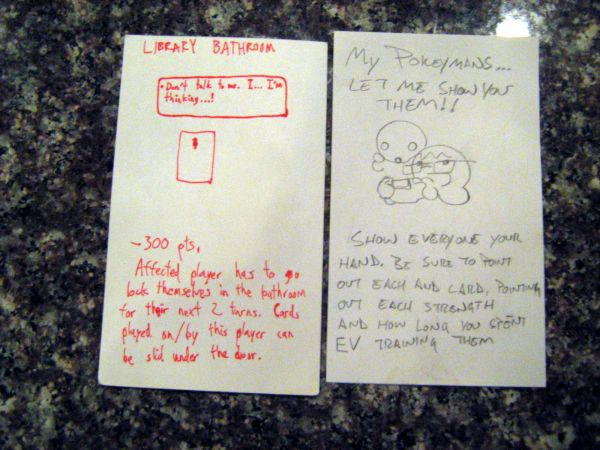 LIBRARY BATHROOM
• Don't talk to me. I... I'm
thinking...!
-300 pts.
Affected player has to go
lock themselves in the bathroom
for their next 2 turns. Cards
played on/by this player can
be slid under the door.
My POKEYMANS...
LET ME SHOW YOU
THEM!!
SHOW EVERYONE YOUR
HAND. BE SURE TO POINT
OUT EACH AND CARD, POINTING
OUT EACH STRENGTH
AND HOW LONG YOU SPENT
EV TRAINING THEM